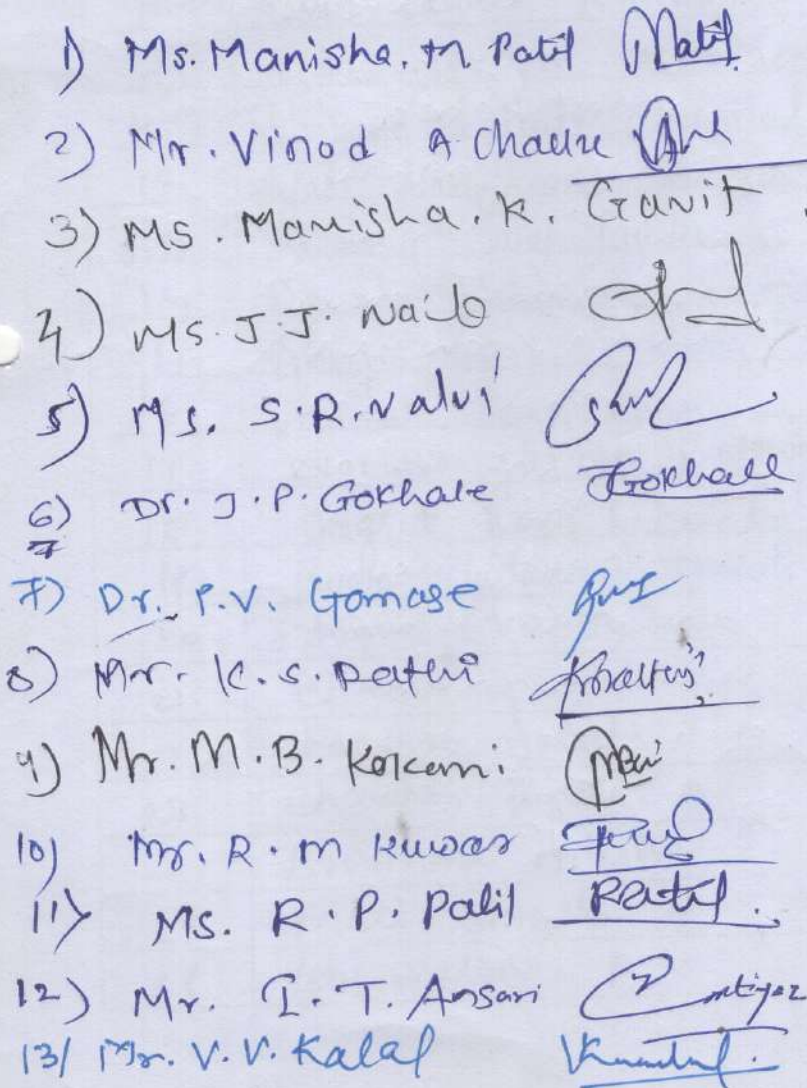 1) Ms. Manisha. M. Patil Patil
2) Mr. Vinod A Chaure
3) Ms. Manisha. K. Gavit
4) Ms. J. J. Naik
5) Ms. S. R. Valvi
6) Dr. J. P. Gokhale JGokhale
7
7) Dr. P. V. Gomase
8) Mr. K. S. Rathi
9) Mr. M. B. Kokani
10) Mr. R. M Kuwar
11) Ms. R. P. Patil RPatil.
12) Mr. I. T. Ansari Imtiyaz
13) Mr. V. V. Kalal